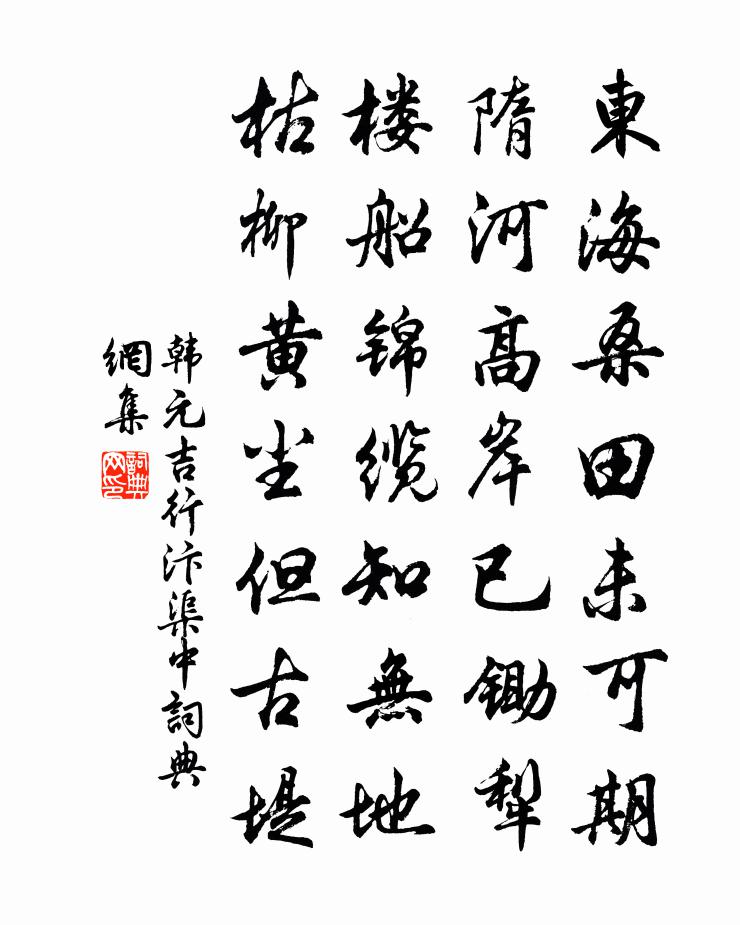 東海桑田未可期
隋河高岸已鋤犂
楼船锦缆知無地
枯柳黄尘但古堤
韩元吉行汴渠中詞典
網集
詞典
网印